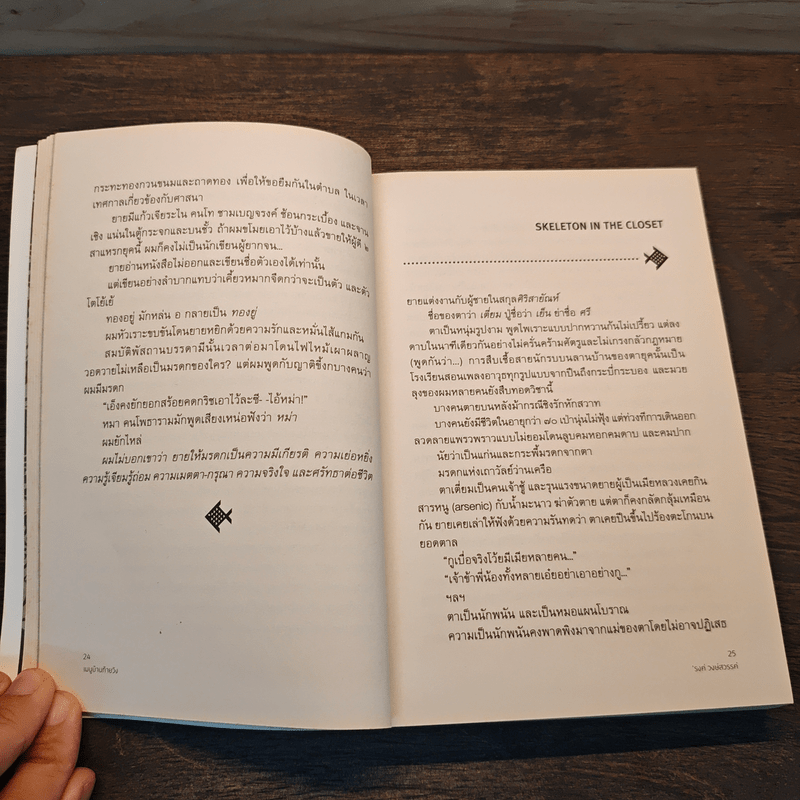 กระทะทองกวนขนมและถาดทอง เพื่อให้ขอยืมกันในตำบล ในเวลา
เทศกาลเกี่ยวข้องกับศาสนา
ยายมีแก้วเจียระไน คนโท ชามเบญจรงค์ ช้อนกระเบื้อง และจาน
เชิง แน่นในตู้กระจกและบนชั้ว ถ้าผมขโมยเอาไว้บ้างแล้วขายให้ผู้ดี ๒
สาแหรกยุคนี้ ผมก็คงไม่เป็นนักเขียนผู้ยากจน...
ยายอ่านหนังสือไม่ออกและเขียนชื่อตัวเองได้เท่านั้น
แต่เขียนอย่างลำบากแทบว่าเคี้ยวหมากจืดกว่าจะเป็นตัว และตัว
โตโย้เย้
ทองอยู่ มักหล่น อ กลายเป็น ทองยู่
ผมหัวเราะขบขันโดนยายหยิกด้วยความรักและหมั่นไส้แกมกัน
สมบัติพัสถานบรรดามีนั้นเวลาต่อมาโดนไฟไหม้เผาผลาญ
วอดวายไม่เหลือเป็นมรดกของใคร? แต่ผมพูดกับญาติซึ้งกบางคนว่า
ผมมีมรดก
“เอ็งคงยักยอกสร้อยคดกริชเอาไว้ละซี- -ไอ้หม่า!”
หมา คนโพธารามมักพูดเสียงเหน่อฟังว่า หม่า
ผมยักไหล่
ผมไม่บอกเขาว่า ยายให้มรดกเป็นความมีเกียรติ ความเย่อหยิ่ง
ความรู้เจียมรู้ถ่อม ความเมตตา-กรุณา ความจริงใจ และศรัทธาต่อชีวิต
24
เมนูบ้านท้ายวัง
SKELETON IN THE CLOSET
ยายแต่งงานกับผู้ชายในสกุลศิริสายัณห์
ชื่อของตาว่า เตี่ยม ปู่ชื่อว่า เย็น ย่าชื่อ ศรี
ตาเป็นหนุ่มรูปงาม พูดไพเราะแบบปากหวานก้นไม่เปรี้ยว แต่ลง
ดาบในนาทีเดียวกันอย่างไม่ครั่นคร้ามศัตรูและไม่เกรงกลัวกฎหมาย
(พูดกันว่า...) การสืบเชื้อสายนักรบบนลานบ้านของตายุคนั้นเป็น
โรงเรียนสอนเพลงอาวุธทุกรูปแบบจากปืนถึงกระบี่กระบอง และมวย
ลุงของผมหลายคนยังสืบทอดวิชานี้
บางคนตายบนหลังม้ากรณีชิงรักหักสวาท
บางคนยังมีชีวิตในอายุกว่า ๗๐ เป่านุ่นไม่ฟุ้ง แต่ท่วงทีการเดินออก
ลวดลายแพรวพราวแบบไม่ยอมโดนลูบคมหอกคมดาบ และคมปาก
นัยว่าเป็นแก่นและกระพี้มรดกจากตา
มรดกแห่งเถาวัลย์ว่านเครือ
ตาเตี่ยมเป็นคนเจ้าชู้ และรุนแรงขนาดยายผู้เป็นเมียหลวงเคยกิน
สารหนู (arsenic) กับน้ำมะนาว ฆ่าตัวตาย แต่ตาก็คงกลัดกลุ้มเหมือน
กัน ยายเคยเล่าให้ฟังด้วยความรันทดว่า ตาเคยปีนขึ้นไปร้องตะโกนบน
ยอดตาล
“กูเบื่อจริงโว้ยมีเมียหลายคน...”
“เจ้าข้าพี่น้องทั้งหลายเอ๋ยอย่าเอาอย่างกู...”
ฯลฯ
ตาเป็นนักพนัน และเป็นหมอแผนโบราณ
ความเป็นนักพนันคงพาดพิงมาจากแม่ของตาโดยไม่อาจปฏิเสธ
25
'รงค์ วงษ์สวรรค์